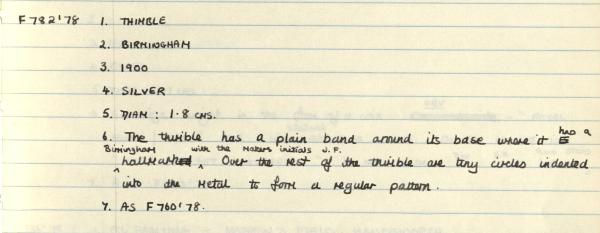 F782'78 1. THIMBLE
2. BIRMINGHAM
3. 1900
4. SILVER
5. DIAM: 1.8 CMS.
6. The thimble has a plain band around its base where it has a
Birmingham hallmark with the Makers initials J.F. Over the rest of the thimble are tiny circles indented
into the metal to form a regular pattern.
7. AS F760'78.